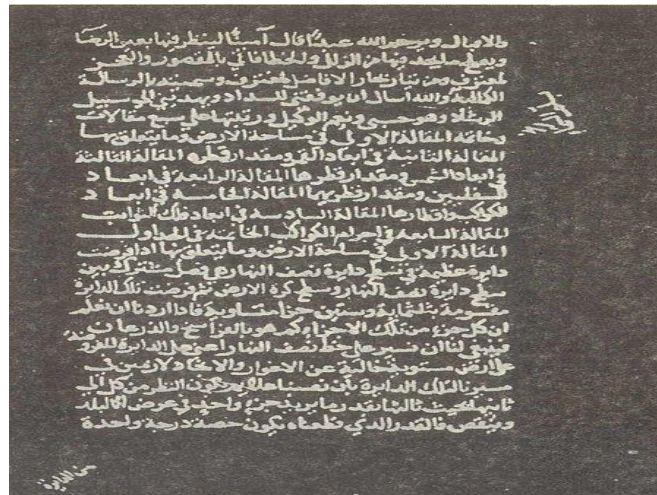 والاقبال ويرحم الله عبدا قال آمينا لينظر فيها بعين الرضا
ويصلح ما يجد بها من الزلل والخطا فاني بالقصور والعجز
لمعترف ومن تيار بحار الافاضل لمغترف وسميتها بالرسالة
الكمالية والله اسال ان يوفقني للسداد ويهديني الى سبيل
الرشاد وهو حسبي ونعم الوكيل ورتبتها على سبع مقالات
وخاتمه المقالة الاولى في مساحة الارض وما يتعلق بها
المقالة الثانية في ابعاد القمر ومقدار قطره المقالة الثالثة
في ابعاد الشمس ومقدار قطرها المقالة الرابعة في ابعاد
السفليين ومقدار قطريهما المقالة الخامسة في ابعاد
الكواكب واقطارها المقالة السادسة في ابعاد فلك الثوابت
المقالة السابعة في اجرام الكواكب الخاتمه في الجداول
المقالة الاولى في مساحة الارض وما يتعلق بها اذا فرضت
دايرة عظيمة في سطح دايرة نصف النهار هي فصل مشترك بين
سطح دايرة نصف النهار وسطح كرة الارض ثم فرضت تلك الدايرة
مقسومة بثلثماية وستين جزءا متساوية فاذا اردنا ان نعلم
ان كل جزء من تلك الاجزاء كم هو بالفراسخ والذرعان
فينبغي لنا ان نسير على خط نصف النهار اعني على الدايرة المفروضة
على ارض مستوية خالية عن الاغوار والانجاد لازمين في
مسيرنا تلك الدايرة بان
ثانيهما بحيث ثالثها بقدر ما يريد جزء واحد في عرض تلك البلد
وينقص فالقدر الذي قطعناه يكون حصة لدرجة واحدة
من الدايرة